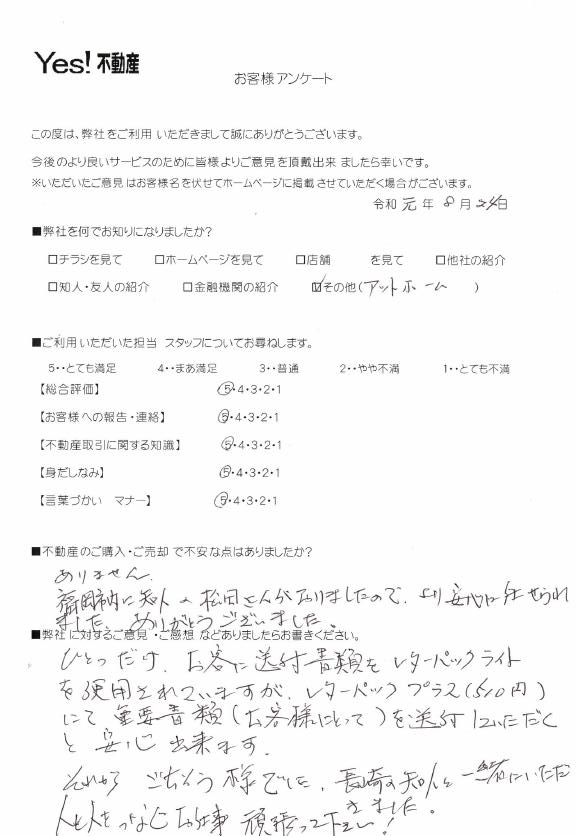 Yes! 不動産
お客様アンケート
この度は、弊社をご利用 いただきまして誠にありがとうございます。
今後のより良いサービスのために皆様よりご意見を頂戴出来 ましたら幸いです。
※いただいたご意見 はお客様名を伏せてホームページに掲載 させていただく場合がございます。
令和 元 年 8 月 24日
■弊社を何でお知りになりましたか?
□チラシを見て □ホームページを見て □店舗 を見て □他社の紹介
□知人・友人の紹介 □金融機関の紹介 ☑その他(アットホーム )
■ご利用いただいた担当 スタッフについてお尋ねします。
5・・とても満足 4・・まあ満足 3・・普通 2・・やや不満 1・・とても不満
【総合評価】 ⑤・4・3・2・1
【お客様への報告・連絡】 ⑤・4・3・2・1
【不動産取引に関する知識】 ⑤・4・3・2・1
【身だしなみ】 ⑤・4・3・2・1
【言葉づかい マナー】 ⑤・4・3・2・1
■不動産のご購入・ご売却 で不安な点はありましたか?
ありません.
福岡市内に知人の松田さんがおりましたので、より安心に任せられ
ました。ありがとうございました。
■弊社 に対するご意見 ・ご感想 などありましたらお書きください。
ひとつだけ、お客に送付書類をレターパックライト
を使用されていますが、レターパックプラス(510円)
にて重要書類(お客様にとって)を送付いただく
と安心出来ます.
それから ごちそう様でした、長崎の知人と一緒にいただ
きました。
人と人をつなぐお仕事 頑張って下さい!